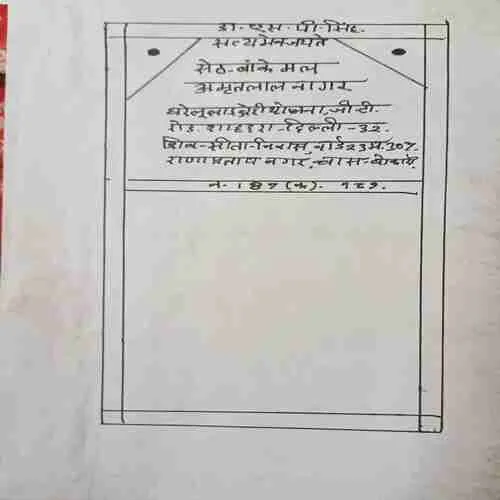 डा. एस. पी. सिंह
सत्यमेव जयते
सेठ-बांके मल
अमृतलाल नागर
घरेलू लाइब्रेरी योजना, जी.टी.
रोड. शाहदरा-दिल्ली-32.
शिव-सीता-निवास, वार्ड 23 म. 107
राणाप्रताप नगर,
न. 187 (क). १२९.